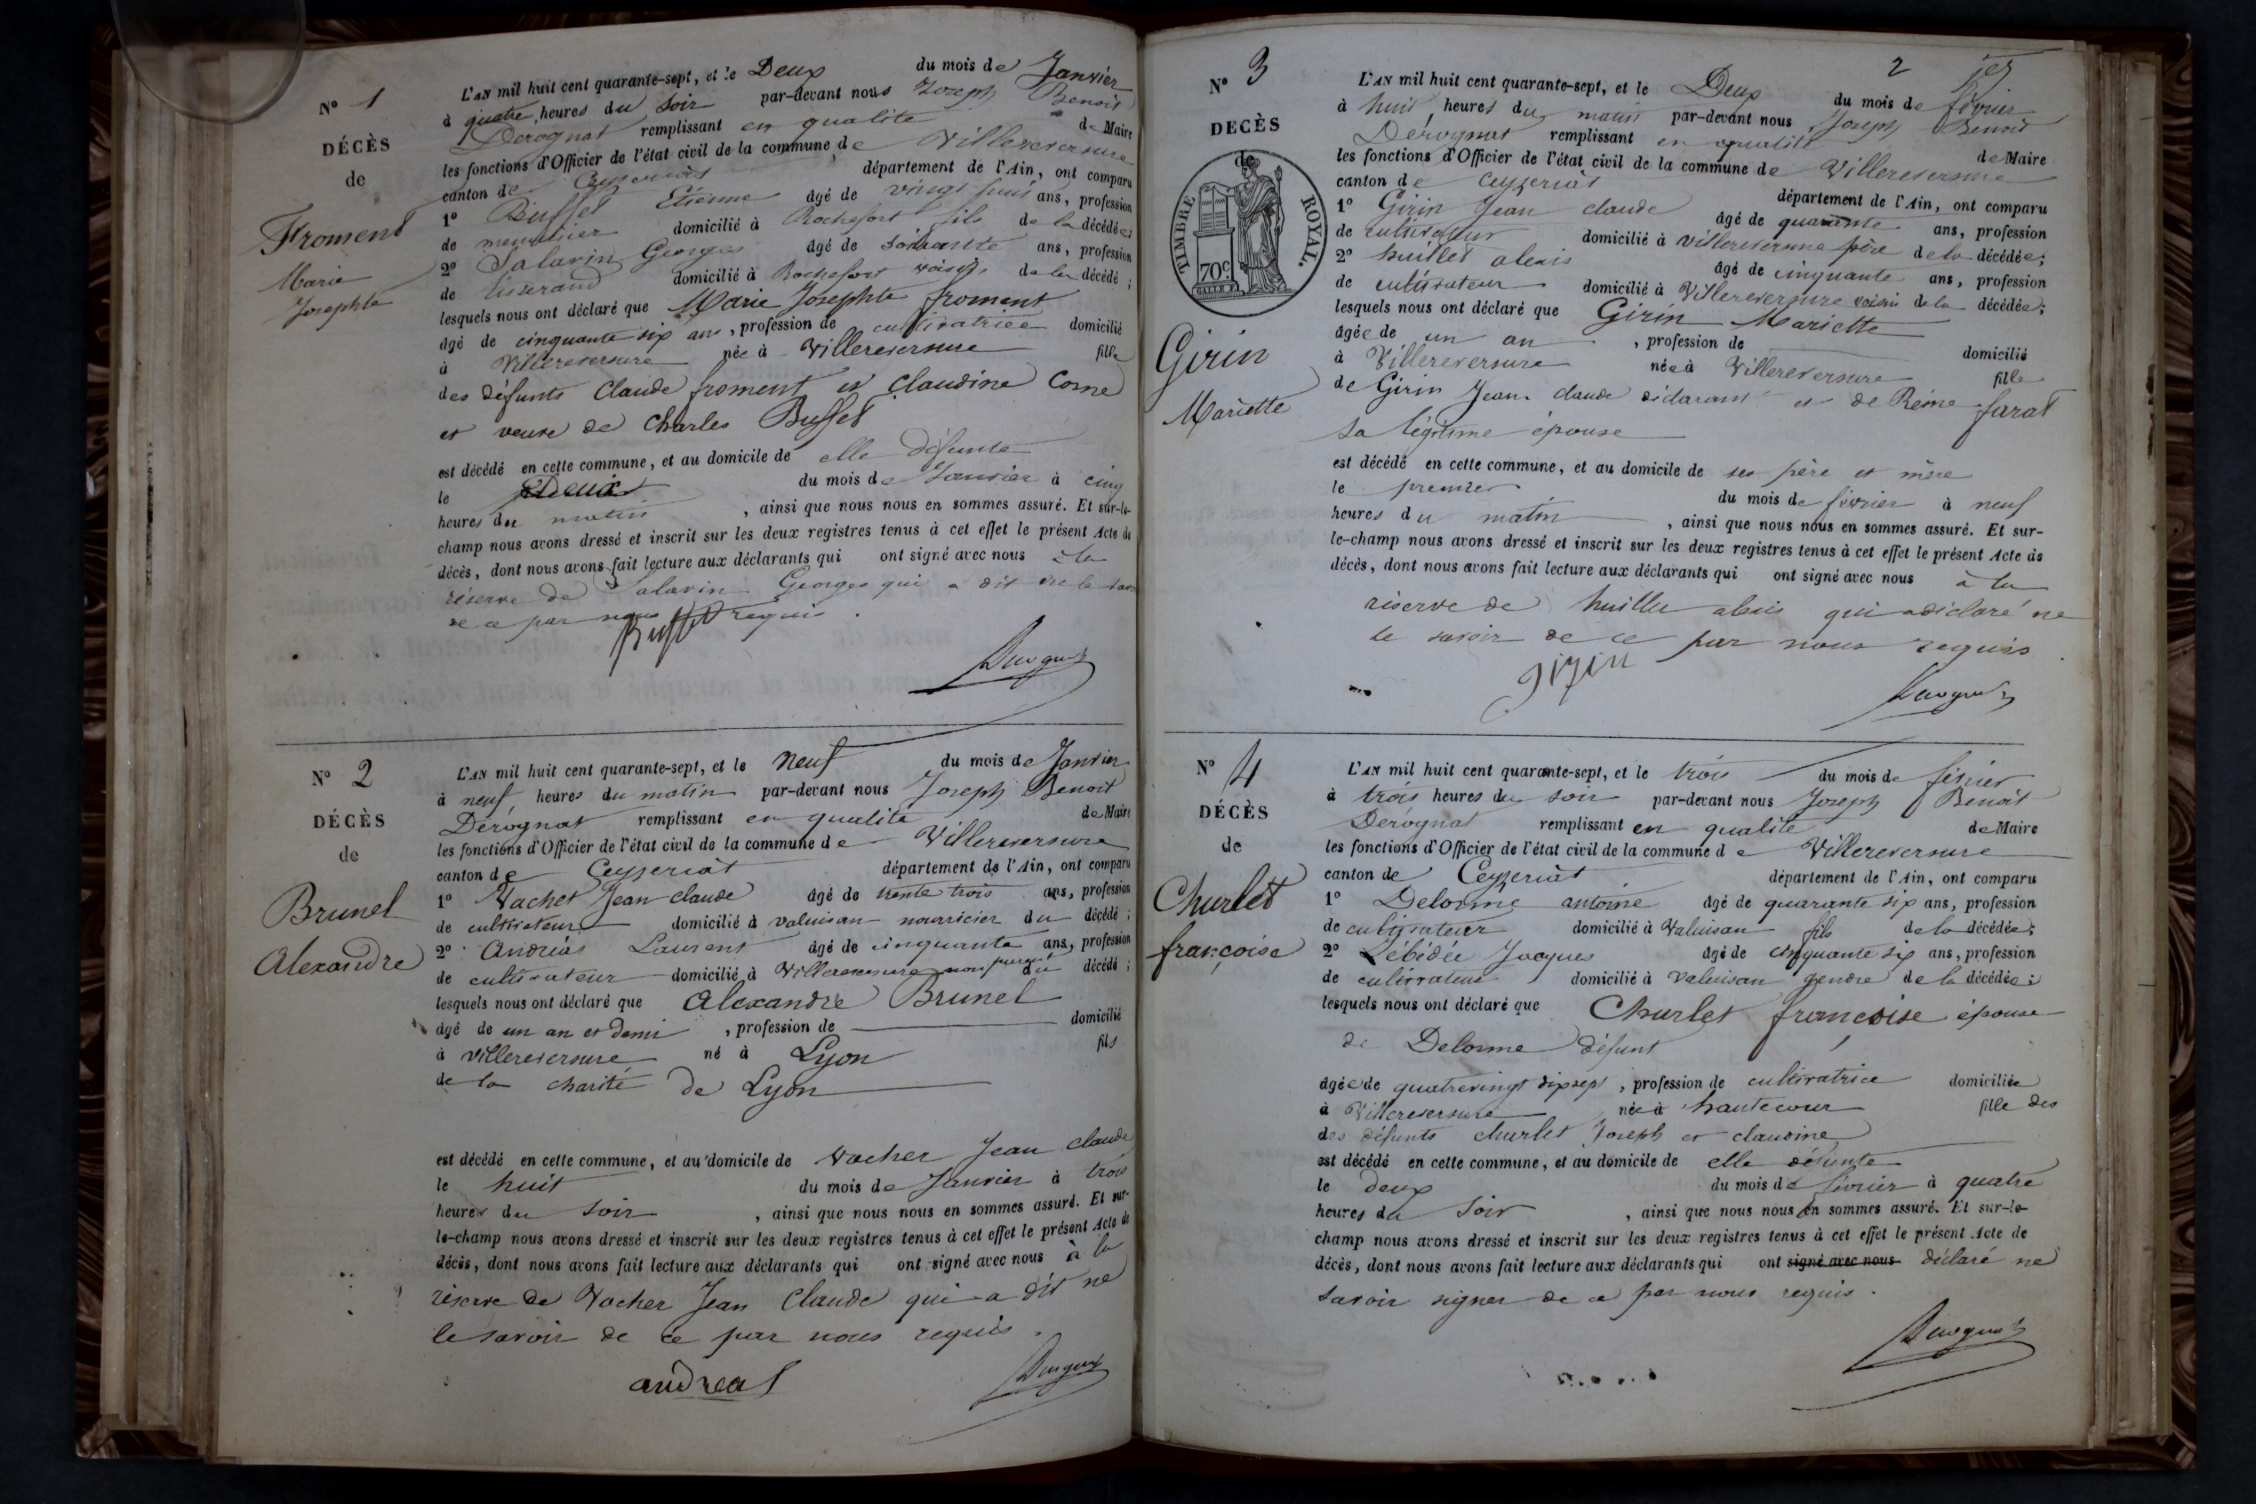 N° 1
DÉCÈS
de
Froment
Marie
Josephte
L'AN mil huit cent quarante-sept, et le Deux du mois de Janvier
à quatre heures du soir par-devant nous Joseph Benoit
Derognat remplissant en qualité de Maire
les fonctions d'Officier de l'état civil de la commune de Villereversure
canton de Ceyzeriat département de l'Ain, ont comparu
1° Buffet Etienne âgé de vingt huit ans, profession
de menuisier domicilié à Rochefort fils de la décédée;
2° Salavin Georges âgé de soixante ans, profession
de tisserand domicilié à Rochefort voisin de la décédé;
lesquels nous ont déclaré que Marie Josephte froment
âgé de cinquante six ans, profession de cultivatrice domicilié
à Villereversure née à Villereversure fille
des défunts Claude froment et Claudine Corne
et veuve de Charles Buffet
est décédé en cette commune, et au domicile de elle défunte
le Deux du mois de Janvier à cinq
heures du matin, ainsi que nous nous en sommes assuré. Et sur-le-
champ nous avons dressé et inscrit sur les deux registres tenus à cet effet le présent Acte de
décès, dont nous avons fait lecture aux déclarants qui ont signé avec nous à la
réserve de Salavin Georges qui a dit ne le savoir
de ce par nous requis.
Buffet
Derognat
N° 2
DÉCÈS
de
Brunel
Alexandre
L'AN mil huit cent quarante-sept, et le neuf du mois de Janvier
à neuf, heures du matin par-devant nous Joseph Benoit
Dérognat remplissant en qualité de Maire
les fonctions d'Officier de l'état civil de la commune de Villereversure
canton de Ceyzeriat département de l'Ain, ont comparu
1° Vacher Jean claude âgé de trente trois ans, profession
de cultivateur domicilié à valuisan nourricier du décédé;
2° Andréas Laurent âgé de cinquante ans, profession
de cultivateur domicilié à Villereversure non parent du décédé;
lesquels nous ont déclaré que Alexandre Brunel
âgé de un an et demi, profession de domicilié
à villereversure né à Lyon fils
de la charité de Lyon
est décédé en cette commune, et au domicile de Vacher Jean claude
le huit du mois de Janvier à trois
heures du soir, ainsi que nous nous en sommes assuré. Et sur-
le-champ nous avons dressé et inscrit sur les deux registres tenus à cet effet le présent Acte de
décès, dont nous avons fait lecture aux déclarants qui ont signé avec nous à la
réserve de Vacher Jean Claude qui a dit ne
le savoir de ce par nous requis.
andreas
Derognat
2
N° 3
DECÈS
de
TIMBRE ROYAL.
70C.
Girin
Mariette
L'AN mil huit cent quarante-sept, et le Deux du mois de février
à huit, heures du matin par-devant nous Joseph Benoit
Dérognat remplissant en qualité de Maire
les fonctions d'Officier de l'état civil de la commune de Villereversure
canton de Ceyzeriat département de l'Ain, ont comparu
1° Girin Jean claude âgé de quarante ans, profession
de cultivateur domicilié à villereversure père de la décédée;
2° huillet alexis âgé de cinquante ans, profession
de cultivateur domicilié à Villereversure voisin de la décédée;
lesquels nous ont déclaré que Girin Mariette
âgée de un an, profession de domicilié
à Villereversure née à Villereversure fille
de Girin Jean claude déclarant et de Reine farat
sa légitime épouse
est décédé en cette commune, et au domicile de ses père et mère
le premier du mois de février à neuf
heures du matin, ainsi que nous nous en sommes assuré. Et sur-
le-champ nous avons dressé et inscrit sur les deux registres tenus à cet effet le présent Acte de
décès, dont nous avons fait lecture aux déclarants qui ont signé avec nous à la
réserve de huillet alexis qui a déclaré ne
le savoir de ce par nous requis.
girin
Derognat
N° 4
DÉCÈS
de
Churlet
françoise
L'AN mil huit cent quarante-sept, et le trois du mois de février
à trois heures du soir par-devant nous Joseph Benoit
Derognat remplissant en qualité de Maire
les fonctions d'Officier de l'état civil de la commune de Villereversure
canton de Ceyzeriat département de l'Ain, ont comparu
1° Delorme antoine âgé de quarante six ans, profession
de cultivateur domicilié à Valuisan fils de la décédée;
2° Lébédée Jacques âgé de cinquante six ans, profession
de cultivateur domicilié à Valuisan gendre de la décédée;
lesquels nous ont déclaré que Churlet françoise épouse
de Delorme défunt
âgée de quatrevingt dix sept, profession de cultivatrice domiciliée
à Villereversure née à hautecour fille des
des défunts churlet Joseph et claudine
est décédé en cette commune, et au domicile de elle défunte
le deux du mois de février à quatre
heures du soir, ainsi que nous nous en sommes assuré. Et sur-le-
champ nous avons dressé et inscrit sur les deux registres tenus à cet effet le présent Acte de
décès, dont nous avons fait lecture aux déclarants qui ont signé avec nous déclaré ne
savoir signer de ce par nous requis.
Derognat